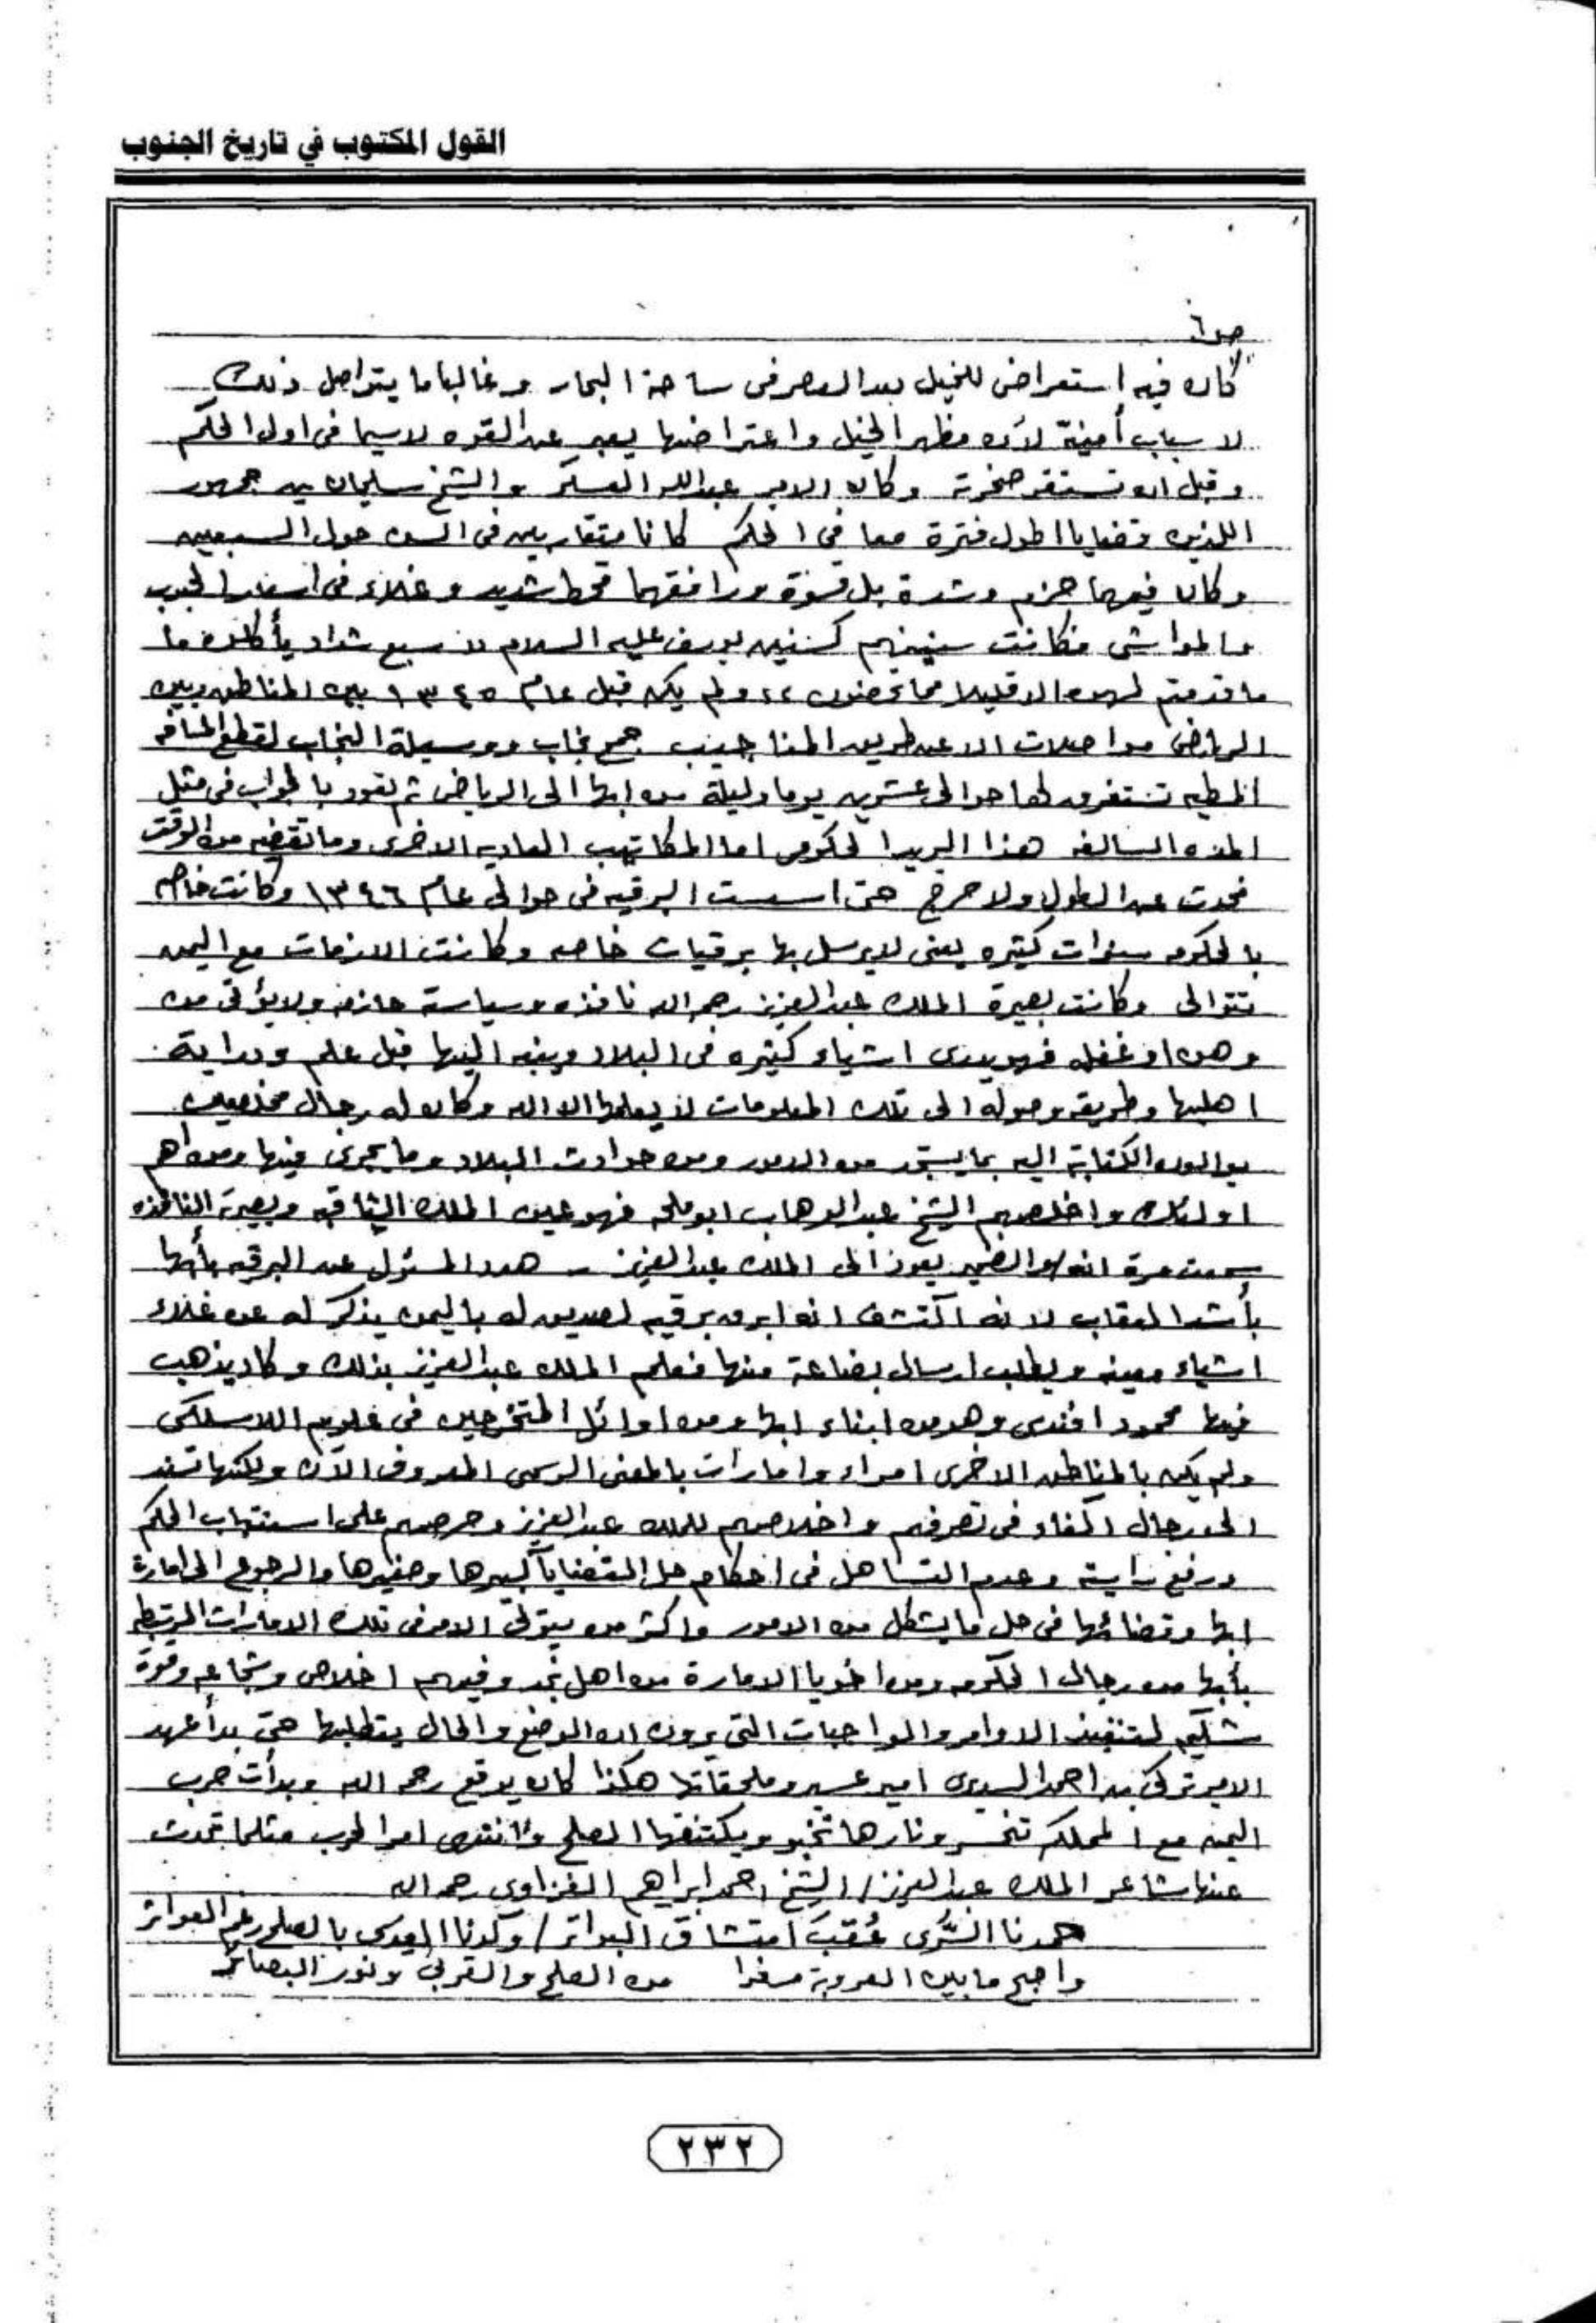 القول المكتوب في تاريخ الجنوب
ص٦
كان فيه استعراض للخيل بعد العصر في ساحة البحار وغالبا ما يتواصل ذلك
لاسباب أمنية لأن مظهر الخيل واعتراضها يعبر عن القوه لاسيما في اول الحكم
وقبل ان تستقر صخرته وكان الامير عبدالله العسكر والشيخ سليمان بن جمهور
اللذين قضايا اطول فترة معا في الحكم كانا متقاربين في السن حول السبعين
وكان فيهما حزم وشدة بل قسوة ورافقهما قحط شديد وغلاء في اسعار الحبوب
والمواشي فكانت سنينهم كسنين يوسف عليه السلام سبع شداد يأكلن ما
ما قدمتم لهن الا قليلا مما تحصنون ،، ولم يكن قبل عام ١٣٤٥ بين المناطق وبين
الرياض مواصلات الا عن طريق المناجيب جمع نجاب ووسيلة النجاب لقطع المسافه
المطيه تستغرق لها حوالي عشرين يوما وليلة من ابها الى الرياض ثم تعود بالجواب في مثل
المده السالفه هذا البريد الحكومي اما المكاتيب العاديه الاخرى وما تقضيه من الوقت
فحدث عن الطول ولا حرج حتى اسست البرقيه في حوالي عام ١٣٤٦ وكانت خاصه
بالحكومه سنوات كثيره يعني لا يرسل بها برقيات خاصه وكانت الازمات مع اليمن
تتوالى وكانت بصيرة الملك عبدالعزيز رحمه الله نافذه وسياسته حازمه ولا يؤتى من
وهن او غفله فهو يدرى اشياء كثيره في البلاد وينبه اليها قبل علم ودراية
اهلها وطريقه وصوله الى تلك المعلومات لا يعلمها الا الله وكان له رجال مخلصين
يوالون الكتابة اليه بما يستجد من الامور ومن حوادث البلاد وما يجرى فيها ومن اهم
اولئك واخلصهم الشيخ عبدالوهاب ابو ملحه فهو عين الملك الثاقبه وبصيرته النافذه
سمعت مرة انه والضمير يعود الى الملك عبدالعزيز - هدد المسئول عن البرقيه بأبها
بأشد العقاب لانه اكتشف انه ابرق برقيه لصديق له باليمن يذكر له عن غلاء
اشياء معينه ويطلب ارسال بضاعة منها فعلم الملك عبدالعزيز بذلك وكاد يذهب
فيها محمود افندى وهو من ابناء ابها ومن اوائل المتخرجين في علوم اللاسلكي
ولم يكن بالمناطق الاخرى امراء وامارات بالمعنى الرسمي المعروف الآن ولكنها تسند
الى رجال اكفاء في تصرفهم واخلاصهم للملك عبدالعزيز وحرصهم على استتباب الحكم
ورفع رايته وعدم التساهل في احكام حل القضايا كبيرها وصغيرها والرجوع الى امارة
ابها وقضائها في حل ما يشكل من الامور واكثر من يتولى الامر في تلك الامارات المرتبطه
بأبها من رجال الحكومه ومن اخويا الامارة من اهل نجد وفيهم اخلاص وشجاعه وقوة
شكيمه لتنفيذ الاوامر والواجبات التي يرون ان الوضع والحال يتطلبها حتى بدأ عهد
الامير تركي بن احمد السديرى امير عسير وملحقاتها هكذا كان يوقع رحمه الله وبدأت حرب
اليمن مع المملكه تنحسر ونارها تخبو ويكتنفها الصلح وانتهى امر الحرب مثلما تحدث
عنها شاعر الملك عبدالعزيز/ الشيخ احمد ابراهيم الغزاوى رحمه الله
حمدنا السُّرى عُقبَ امتشاق البواتر / وكدنا العِدى بالصلح رغم العواثر
واصبح ما بين العروبة مسفرا من الصلح والقربى ونور البصائر
٢٣٢